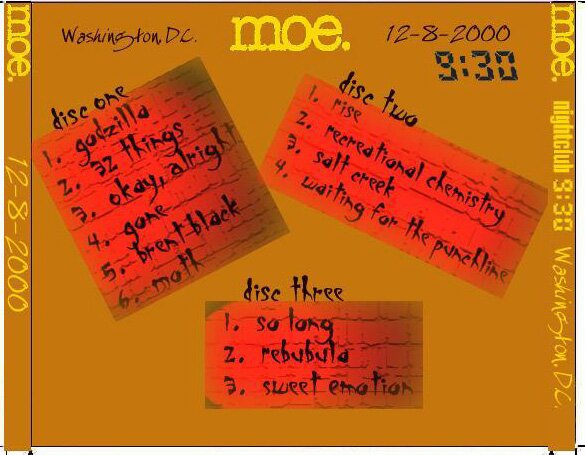 moe.
12-8-2000
Washington, D.C.
moe.
12-8-2000
9:30
disc one
1. godzilla
2. 32 things
3. okay, alright
4. gone
5. brent black
6. moth
disc two
1. rise
2. recreational chemistry
3. salt creek
4. waiting for the punchline
disc three
1. so long
2. rebubula
3. sweet emotion
moe. nightclub 9:30 Washington, D.C.